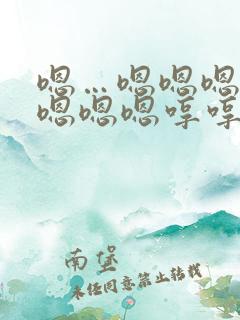 嗯…嗯嗯嗯
嗯嗯嗯哼哼
南堡
未经同意禁止转载